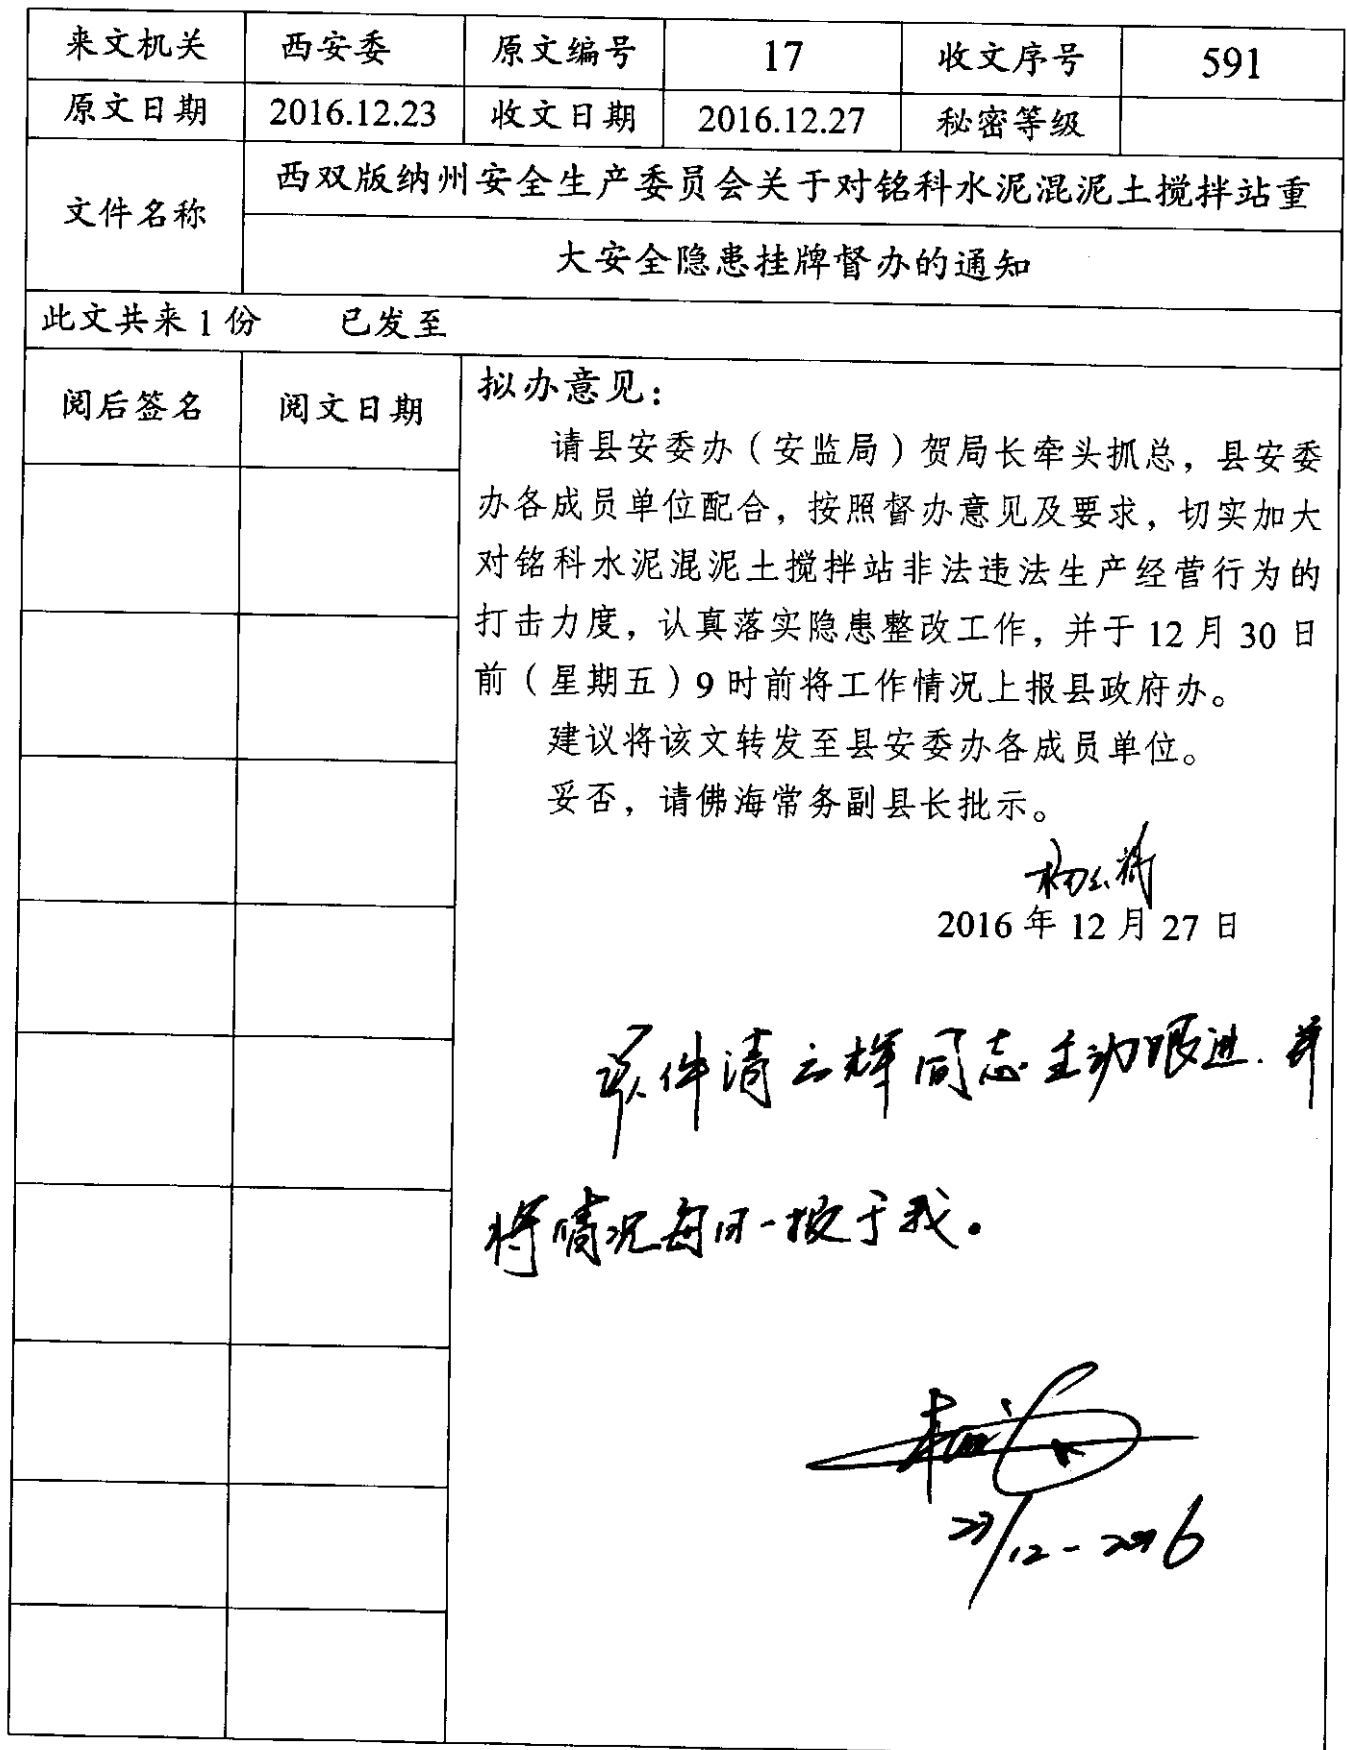 来文机关 西安委 原文编号 17 收文序号 591
原文日期 2016.12.23 收文日期 2016.12.27 秘密等级
文件名称 西双版纳州安全生产委员会关于对铭科水泥混泥土搅拌站重
大安全隐患挂牌督办的通知
此文共来 1 份 已发至
阅后签名 阅文日期 拟办意见：
请县安委办（安监局）贺局长牵头抓总，县安委
办各成员单位配合，按照督办意见及要求，切实加大
对铭科水泥混泥土搅拌站非法违法生产经营行为的
打击力度，认真落实隐患整改工作，并于 12 月 30 日
前（星期五）9 时前将工作情况上报县政府办。
建议将该文转发至县安委办各成员单位。
妥否，请佛海常务副县长批示。
2016 年 12 月 27 日
该件请云辉同志主动跟进.并
将情况每日一报于我。
27/12-2016